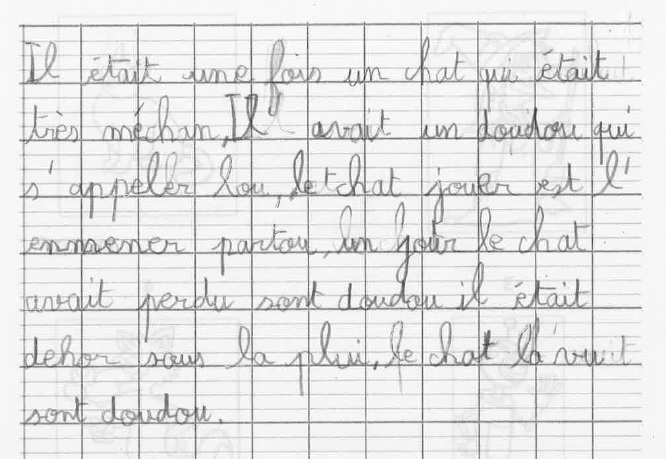 Il était une fois un chat qui était
très méchan, Il avait un doudou qui
s'appeler lou, le chat jouer est l'
enmener partou, un jour le chat
avait perdu sont doudou il était
dehor sous la plui, le chat la vuit
sont doudou.